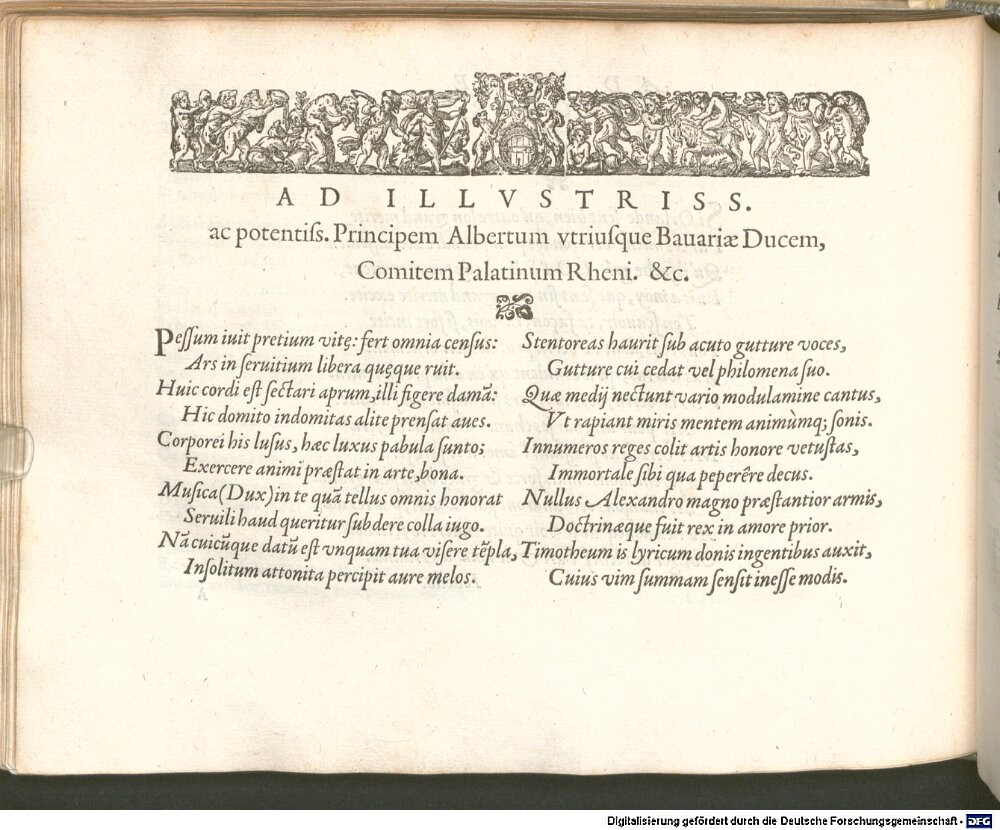 AD ILLVSTRISS.
ac potentiſs. Principem Albertum vtriuſque Bauariæ Ducem,
Comitem Palatinum Rheni. &c.
Peſſum iuit pretium vitę: fert omnia cenſus:
Ars in ſeruitium libera quęque ruit.
Huic cordi eſt ſectari aprum, illi figere damā:
Hic domito indomitas alite prenſat aues.
Corporei his luſus, hæc luxus pabula ſunto;
Exercere animū præſtat in arte, bona.
Muſica (Dux) in te quā tellus omnis honorat
Seruili haud queritur ſubdere colla iugo.
Nā cuicūque datū eſt vnquam tua viſere tēpla,
Inſolitum attonita percipit aure melos.
Stentoreas haurit ſub acuto gutture voces,
Gutture cui cedat vel philomena ſuo.
Quæ medij nectunt vario modulamine cantus,
Vt rapiant miris mentem animùmq; ſonis.
Innumeros reges colit artis honore vetuſtas,
Immortale ſibi qua peperêre decus.
Nullus Alexandro magno præſtantior armis,
Doctrinæque fuit rex in amore prior.
Timotheum is lyricum donis ingentibus auxit,
Cuius vim ſummam ſenſit ineſſe modis.
Digitalisierung gefördert durch die Deutsche Forschungsgemeinschaft - DFG